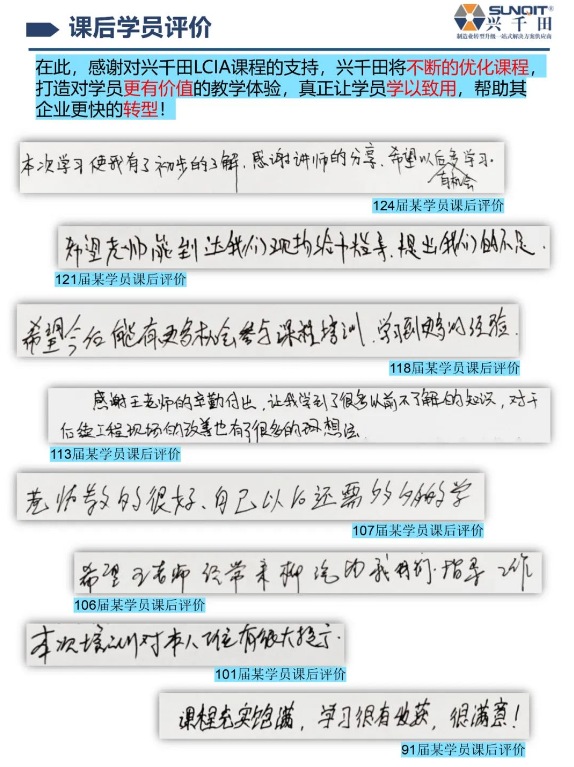 课后学员评价
SUNQIT®
兴千田
制造业转型升级一站式解决方案供应商
在此，感谢对兴千田LCIA课程的支持，兴千田将不断的优化课程，
打造对学员更有价值的教学体验，真正让学员学以致用，帮助其
企业更快的转型！
本次学习使我有了初步的了解，感谢讲师的分享、希望以后多学习。
有机会
124届某学员课后评价
希望老师能到达我们现场给予指导，提出我们的不足．
121届某学员课后评价
希望今后能有更多机会参与课程培训，学习到更多的经验．
118届某学员课后评价
感谢王老师的辛勤付出，让我学到了很多以前不了解的知识，对于
后续工程现场的改善也有了很多的 想法．
113届某学员课后评价
老师教的很好、自己以后还需多多的学
107届某学员课后评价
希望王老师经常来柳 指导工作
106届某学员课后评价
本次培训对本人 有很大提示．
101届某学员课后评价
课程充实饱满，学习很有收获，很满意！
91届某学员课后评价